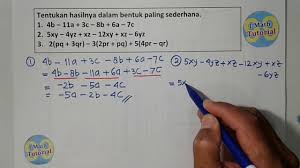 Tentukan hasilnya dalam bentuk paling sederhana.
1. 4b – 11a + 3c – 8b + 6a – 7c
2. 5xy – 4yz + xz – 12xy + xz – 6yz
3. 2(pq + 3qr) – 3(2pr + pq) + 5(4pr – qr)
Math Tutorial
Math Tutorial
① 4b – 11a + 3c – 8b + 6a – 7c
= 4b – 8b – 11a + 6a + 3c – 7c
= –2b – 5a – 4c
= –5a – 2b – 4c //
② 5xy – 4yz + xz – 12xy + xz
– 6yz
= 5x